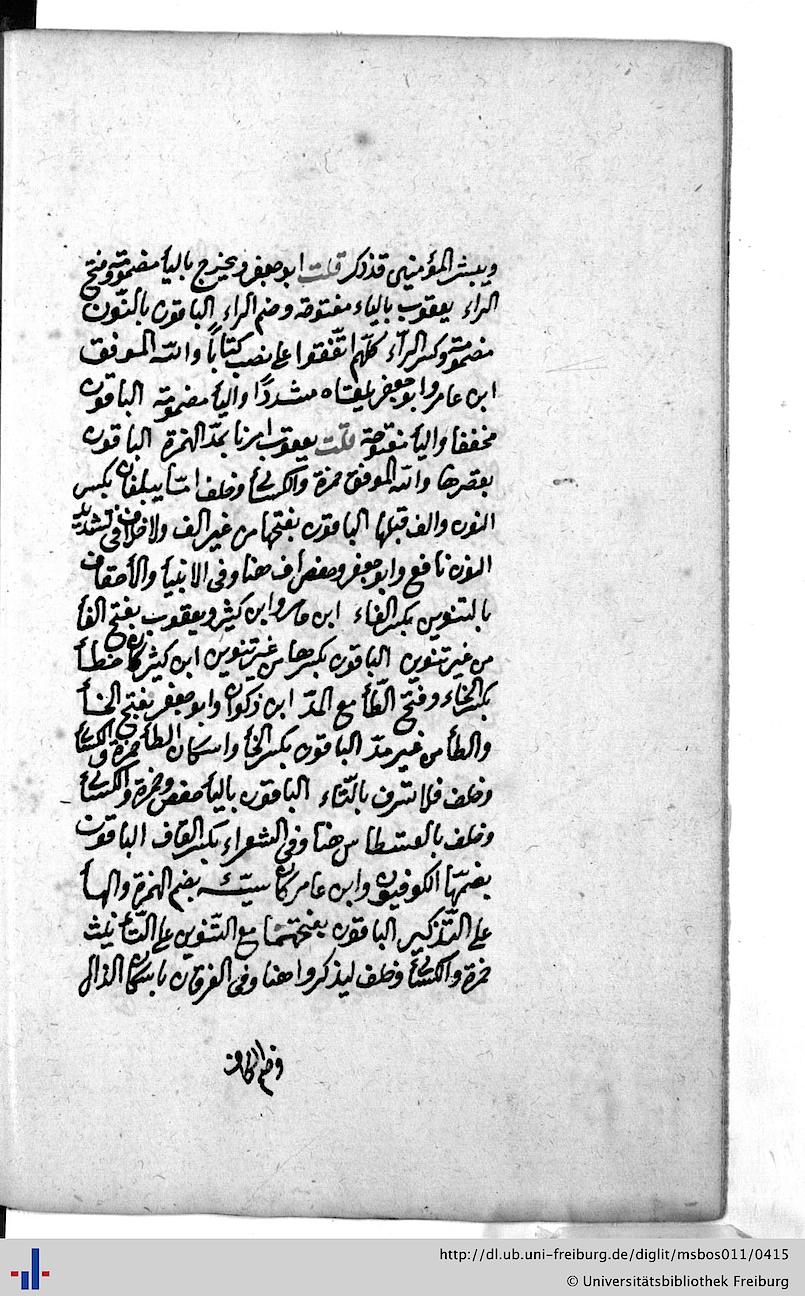 ويبشر المؤمنين قد ذكر قلت ابو جعفر ويخرج باليأ مضمومة وفتح
الراء يعقوب بالياء مفتوحة وضم الراء الباقون بالنّون
مضمومة وكسر الرآء كلّهم اتّفقوا على نصب كتابًا والله الموفق
ابن عامر وابو جعفر يلقّاه مشددًا واليأ مضمومة الباقون
مخففا واليأ مفتوحة قلت يعقوب امرنا بمدّ الهمزة الباقون
بقصرها والله الموفق حمزة والكسائي وخلف امّا يبلغان بكسر
النون والف قبلها الباقون بفتحها من غير الف ولا خلاف في تشديد
النون نافع وابو جعفر وحفص اف هنا وفى الانبيأ والأحقاف
بالتنوين بكسر الفاء ابن عامر وابن كثير ويعقوب بفتح الفأ
من غير تنوين الباقون بكسرها من غير تنوين ابن كثير كان خطأ
بكسر الخاء وفتح الطّأ مع المدّ ابن ذكوان وابو جعفر بفتح الخأ
والطأ من غير مدّ الباقون بكسر الخأ واسكان الطأ حمزة والكسائي
وخلف فلا تسرف بالتّاء الباقون باليأ حفص وحمزة والكسائي
وخلف بالقسطاس هنا وفي الشعراء بكسر القاف الباقون
بضمّها الكوفيون وابن عامر كان سيّئه بضم الهمزة والهأ
على التّذكير الباقون بفتحهما مع التّنوين على التّأنيث
حمزة والكسائي وخلف ليذكروا هنا وفى الفرقان باسكان الذال
وضم الكاف
http://dl.ub.uni-freiburg.de/diglit/msbos011/0415
© Universitätsbibliothek Freiburg